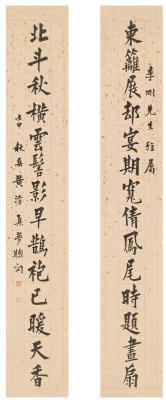 東籬展却宴期寬倩鳳尾時題畫扇
季剛先生雅屬
北斗秋橫雲髻影早鵲袍已暖天香
壬申秋岳黃濬集夢牕詞